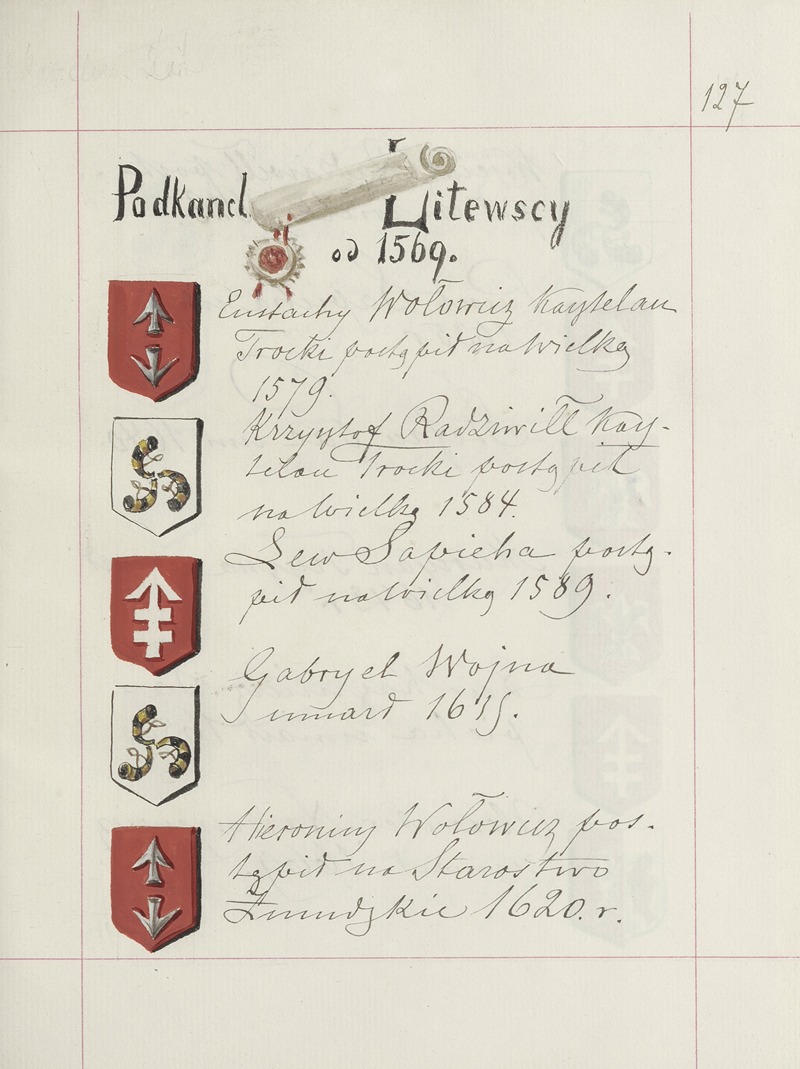 127
Podkancl. Litewscy
od 1569.
Eustachy Wołowicz Kasztelan
Trocki postąpił na Wielką
1579.
Krzysztof Radziwiłł Kasz-
telan Trocki postąpił
na Wielką 1584.
Lew Sapieha postą-
pił na Wielką 1589.
Gabryel Wojna
umarł 1615.
Hieronim Wołowicz pos-
tąpił na Starostwo
Żmudzkie 1620. r.